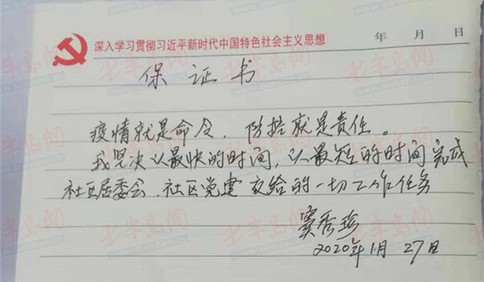 深入学习贯彻习近平新时代中国特色社会主义思想 年 月 日
保证书
疫情就是命令，防控就是责任。
我坚决以最快的时间，以最短的时间完成
社区居委会、社区党建交给的一切工作任务
窦秀珍
2020年1月27日
半岛网